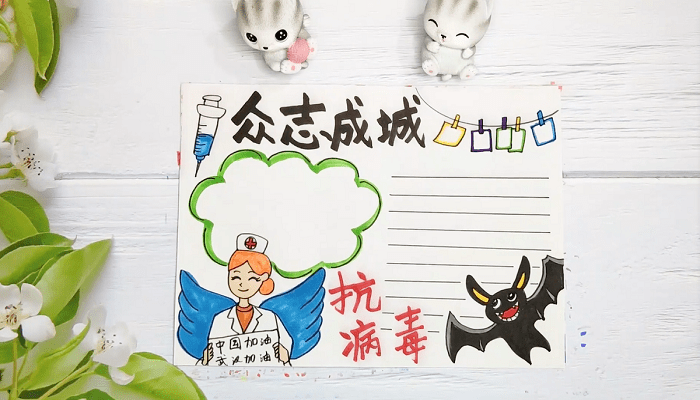 众志成城
抗
病毒
中国加油
武汉加油